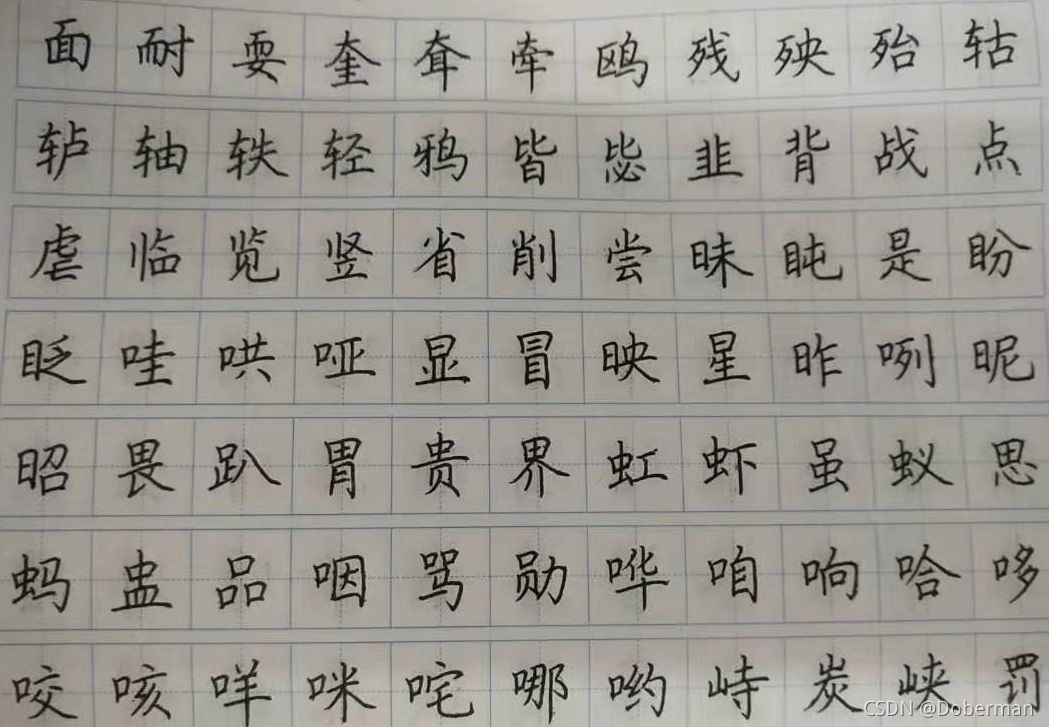 面耐耍奎耷牵鸥残殃殆轱
轳轴轶轻鸦皆毖韭背战点
虐临览竖省削尝昧盹是盼
眨哇哄哑显冒映星昨咧昵
昭畏趴胃贵界虹虾虽蚁思
蚂盅品咽骂勋哗咱响哈哆
咬咳咩咪咤哪哟峙炭峡罚
CSDN @Doberman